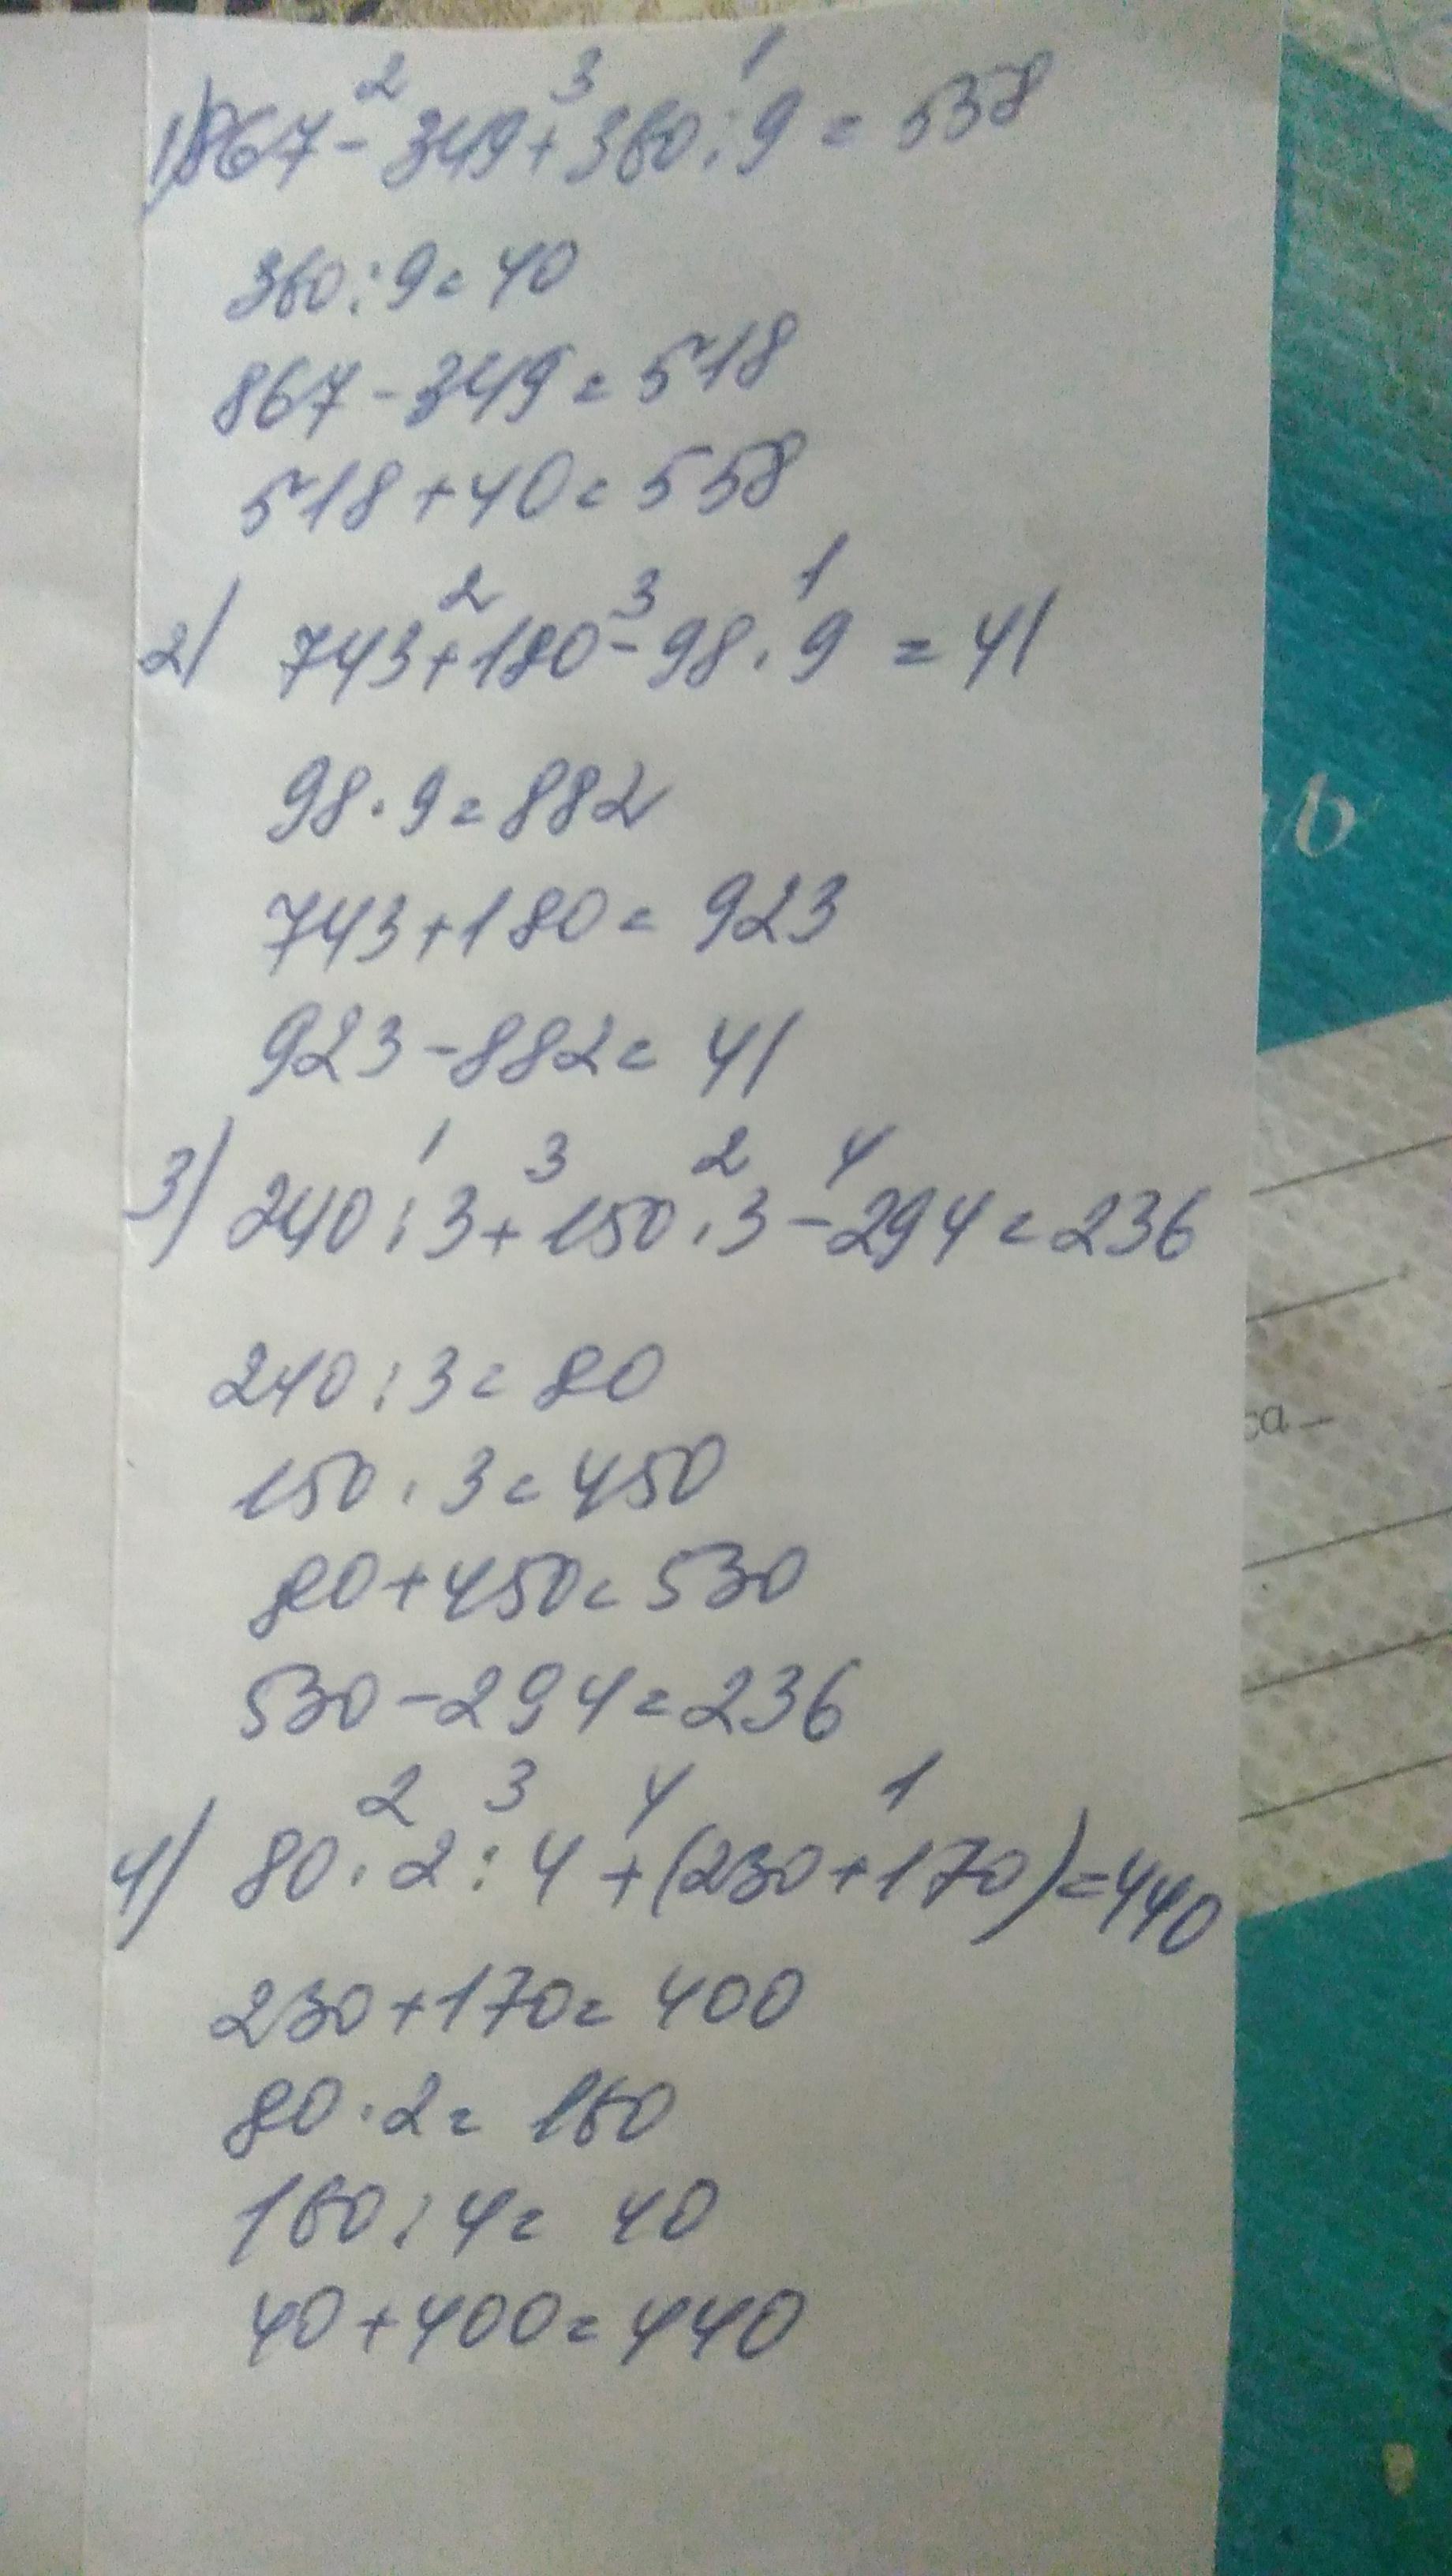 2 3 1
1) 867-349+360:9=538
360:9=40
867-349=518
518+40=558
2 3 1
2) 743+180-98·9=41
98·9=882
743+180=923
923-882=41
1 3 2 4
3) 240:3+150·3-294=236
240:3=80
150·3=450
80+450=530
530-294=236
2 3 4 1
4) 80·2:4+(230+170)=440
230+170=400
80·2=160
160:4=40
40+400=440